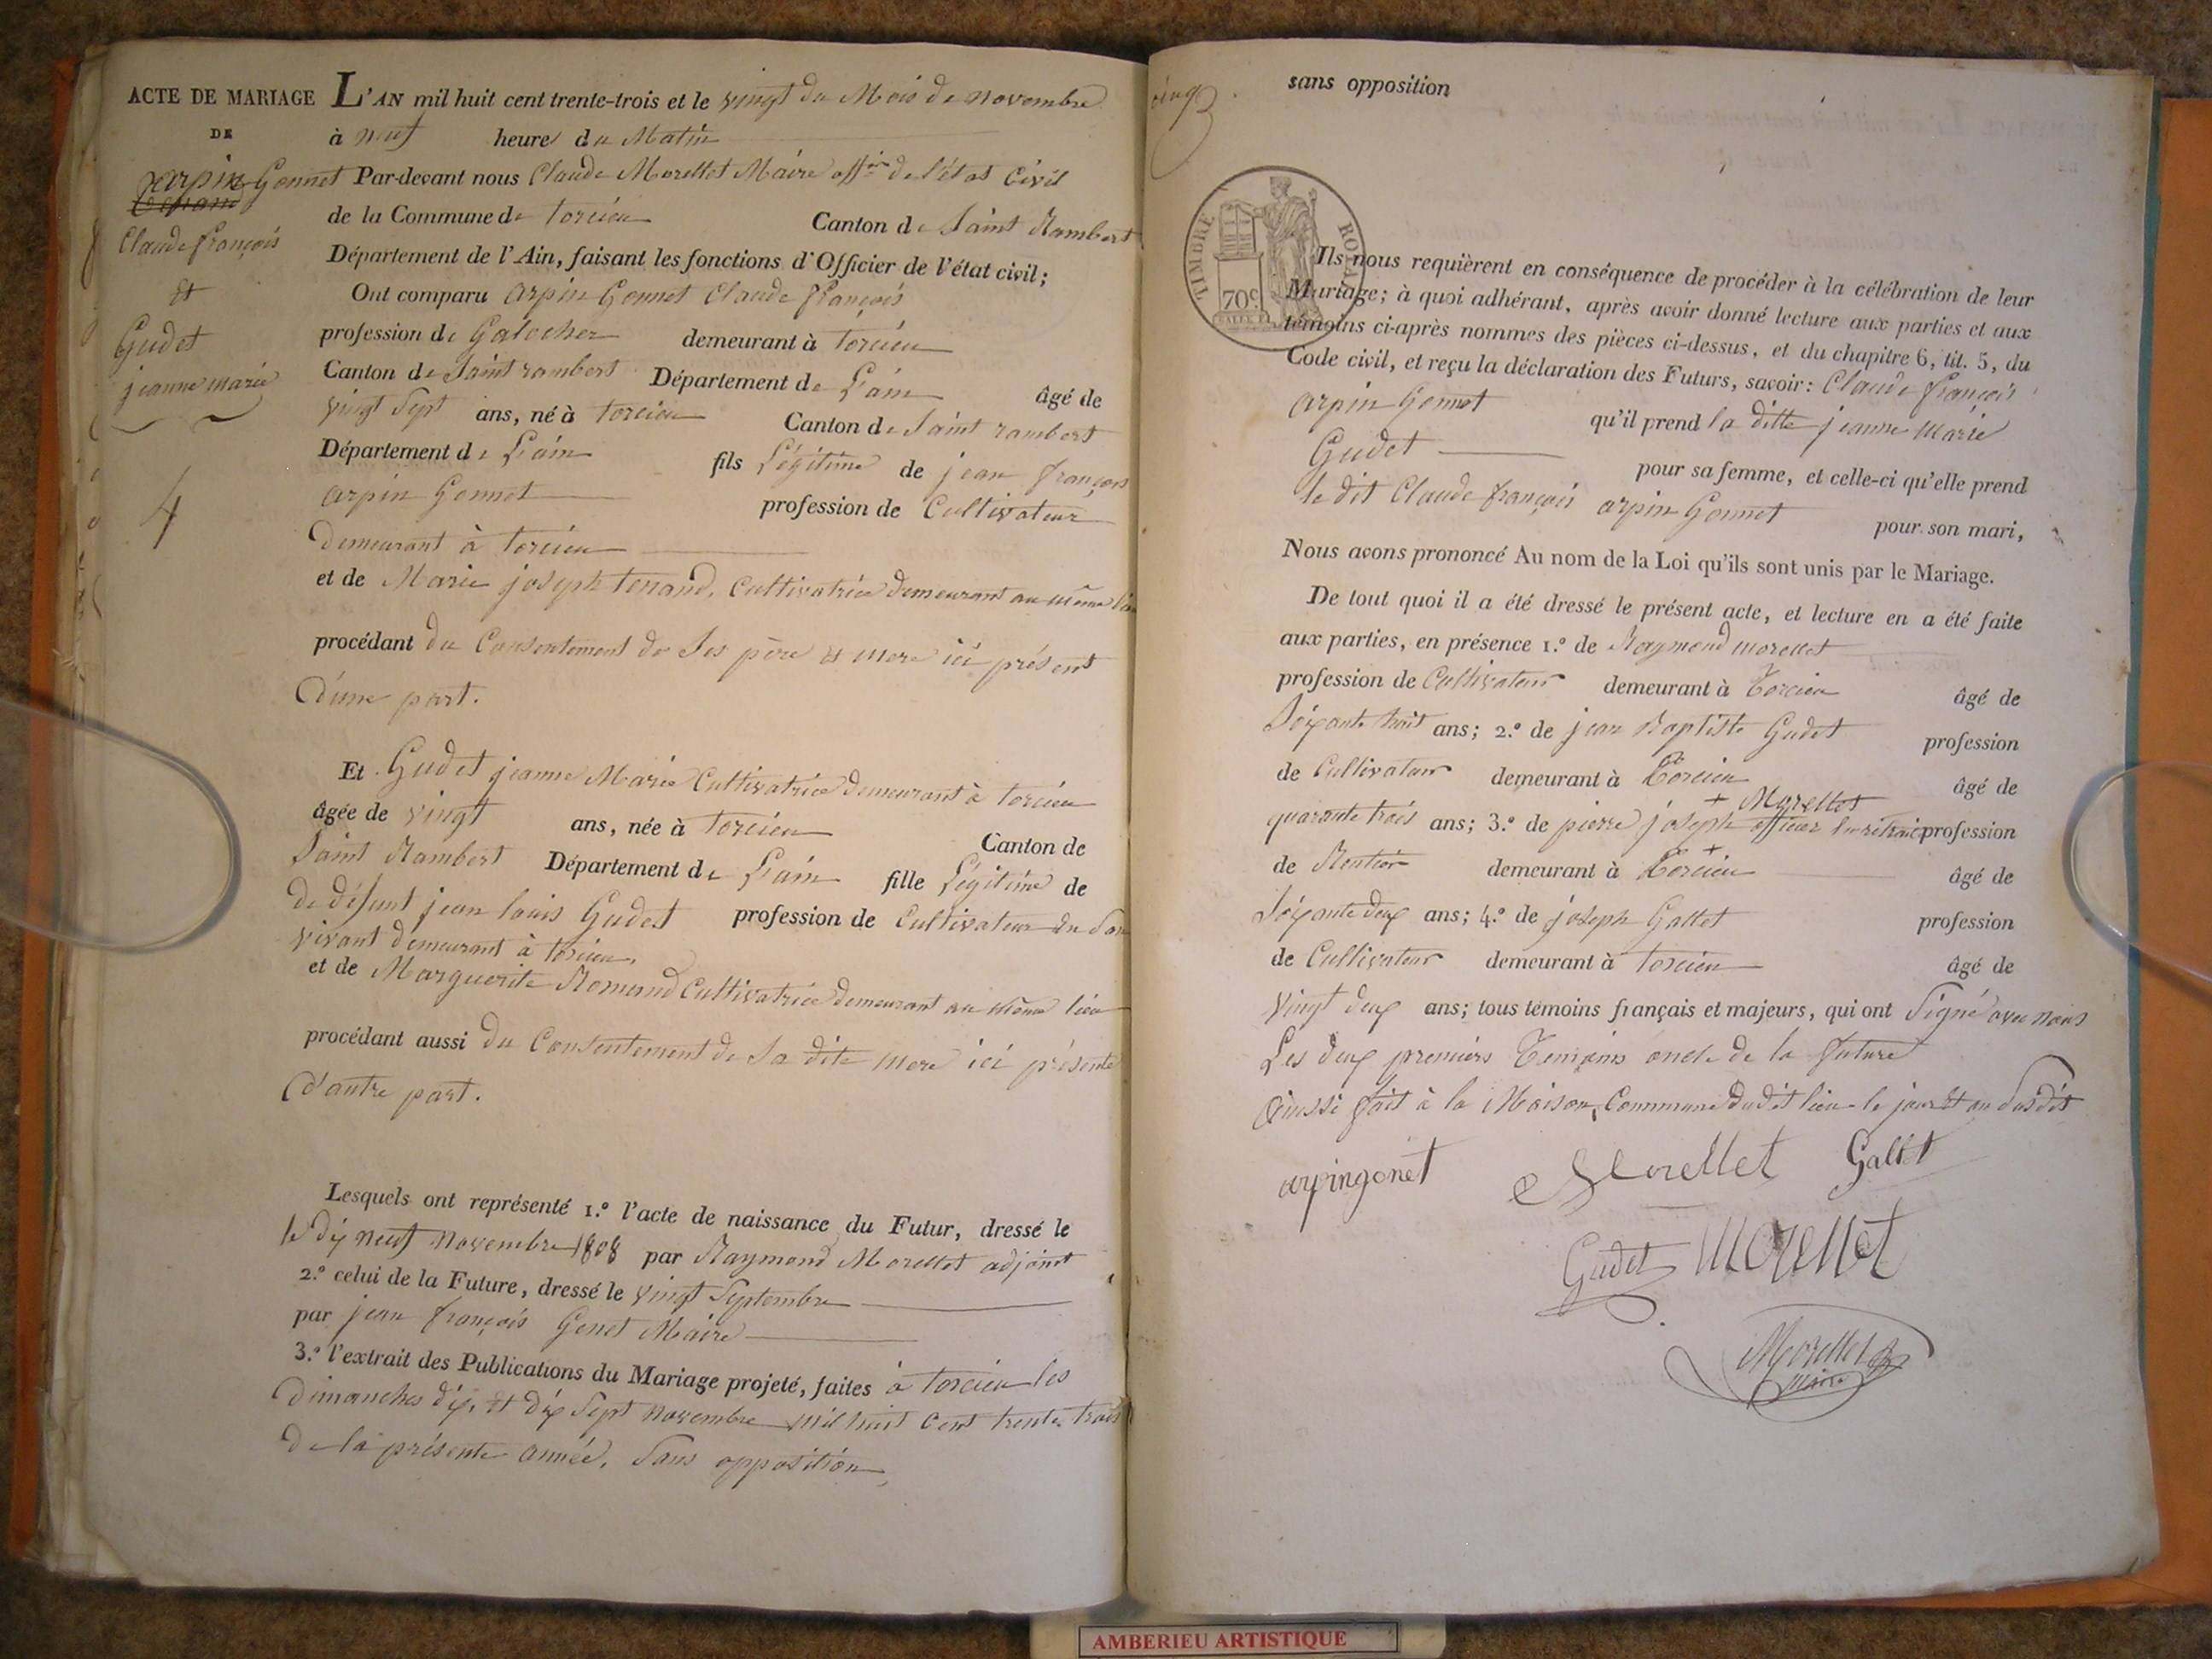 ACTE DE MARIAGE
DE
arpin Gonnet
Claude françois
et
Gudet
jeanne marie
4
L'AN mil huit cent trente-trois et le vingt du Mois de novembre
à neuf heures du Matin
Par-devant nous Claude Morellet Maire off.er de l'état Civil
de la Commune de torcieu Canton de Saint Rambert
Département de l'Ain, faisant les fonctions d'Officier de l'état civil;
Ont comparu arpin Gonnet Claude françois
profession de Galocher demeurant à torcieu
Canton de Saint rambert Département de L'ain âgé de
vingt Sept ans, né à torcieu Canton de Saint rambert
Département de L'ain fils Légitime de jean françois
arpin Gonnet profession de Cultivateur
demeurant à torcieu
et de Marie joseph tenand, Cultivatrice demeurant au même lieu
procédant du Consentement de Ses père et mere ici présent
d'une part.
Et Gudet jeanne Marie Cultivatrice demeurant à torcieu
âgée de vingt ans, née à torcieu Canton de
Saint Rambert Département de L'ain fille Légitime de
de défunt jean louis Gudet profession de Cultivateur de Son
vivant demeurant à torcieu,
et de Marguerite Romand Cultivatrice demeurant au même lieu
procédant aussi du Consentement de Sa dite mere ici présente
d'autre part.
Lesquels ont représenté 1.º l'acte de naissance du Futur, dressé le
le dix neuf novembre 1808 par Raymond Morellet adjoint
2.º celui de la Future, dressé le vingt Septembre
par jean françois Genet Maire
3.º l'extrait des Publications du Mariage projeté, faites à torcieu les
dimanches dix, et dix Sept novembre mil huit cent trente trois
de la présente année, Sans opposition
sans opposition
TIMBRE ROYAL
70c
Ils nous requièrent en conséquence de procéder à la célébration de leur
Mariage; à quoi adhérant, après avoir donné lecture aux parties et aux
témoins ci-après nommes des pièces ci-dessus, et du chapitre 6, tit. 5, du
Code civil, et reçu la déclaration des Futurs, savoir: Claude françois
arpin Gonnet qu'il prend la ditte jeanne Marie
Gudet pour sa femme, et celle-ci qu'elle prend
le dit Claude françois arpin Gonnet pour son mari,
Nous avons prononcé Au nom de la Loi qu'ils sont unis par le Mariage.
De tout quoi il a été dressé le présent acte, et lecture en a été faite
aux parties, en présence 1.º de Raymond morellet
profession de Cultivateur demeurant à Torcieu âgé de
Soixante huit ans; 2.º de jean Baptiste Gudet profession
de Cultivateur demeurant à Torcieu âgé de
+ Morellet
quarante trois ans; 3.º de pierre joseph officier en retraite profession
de Rentier demeurant à Torcieu âgé de
Soixante deux ans; 4.º de joseph Gallet profession
de Cultivateur demeurant à torcieu âgé de
vingt deux ans; tous témoins français et majeurs, qui ont Signé avec nous
Les deux premiers Temoins oncle de la future
ainssi fait à la Maison, Commune dudit lieu le jour et an Susdit
arpingonet Morellet Gallet
Gudet Morellet
Morellet
maire
AMBERIEU ARTISTIQUE